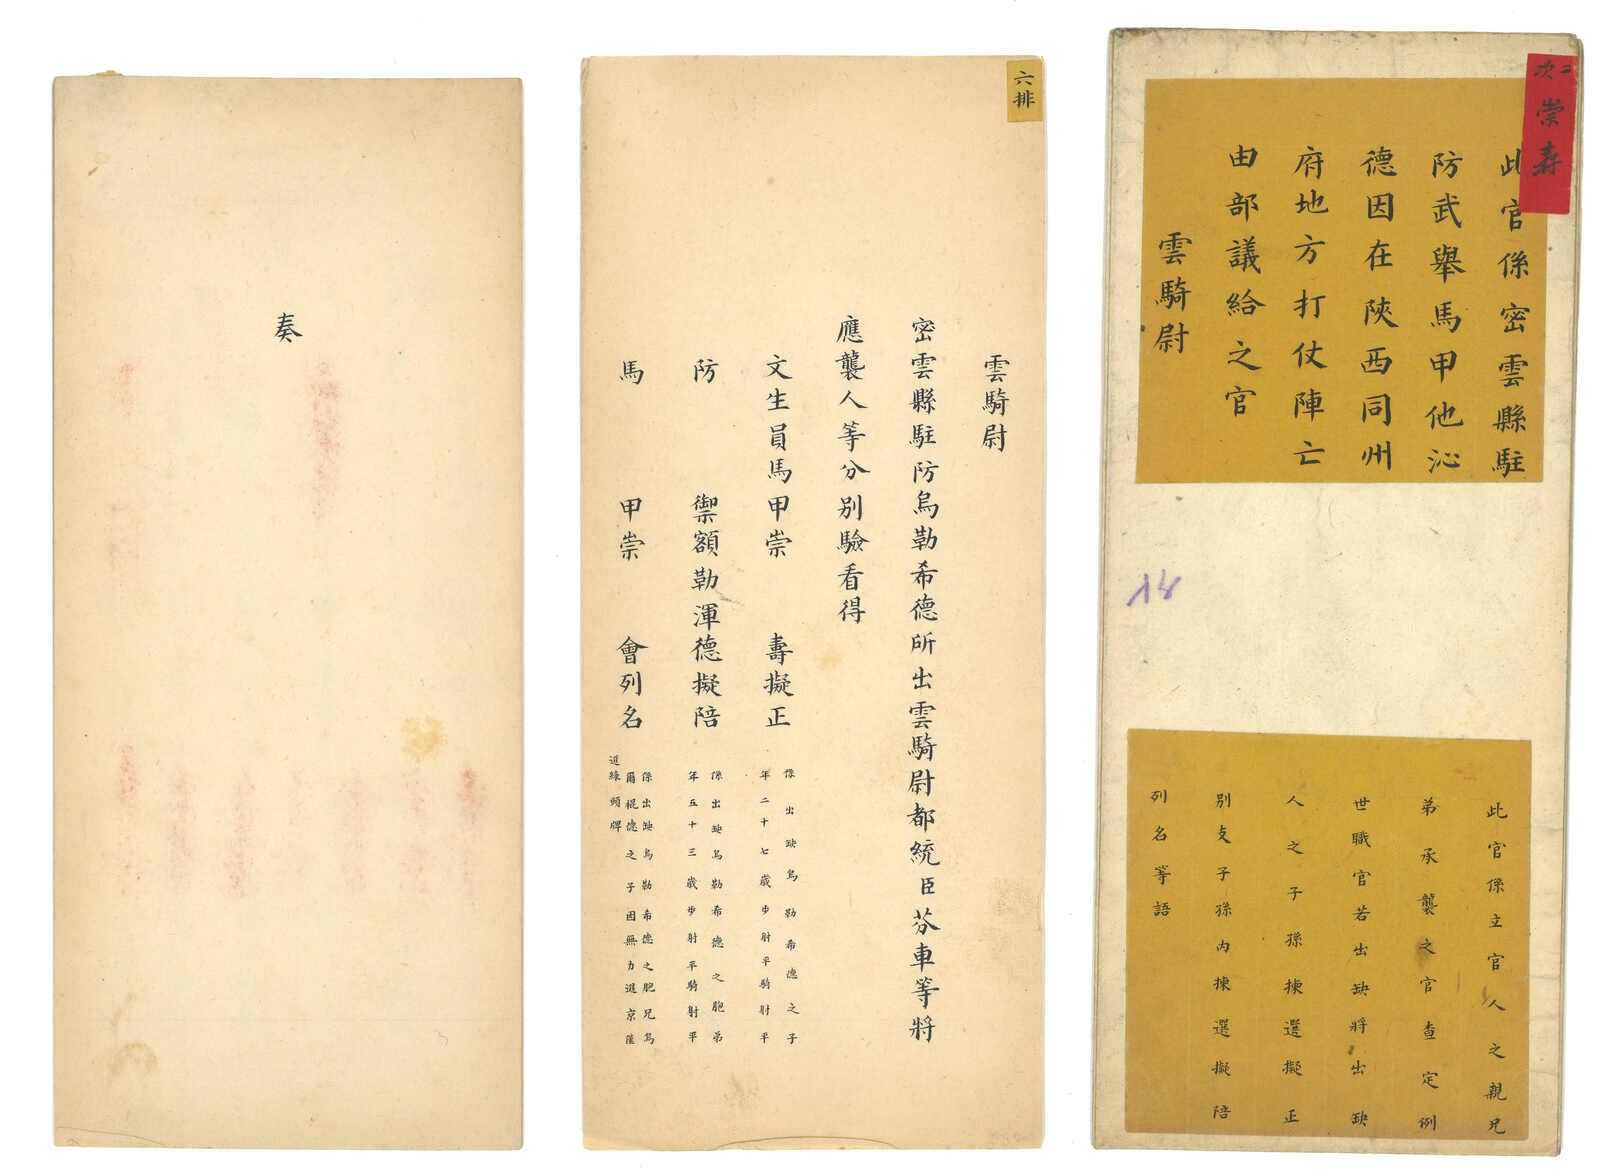 奏
六排
雲騎尉
密雲縣駐防烏勒希德所出雲騎尉都統臣芬車等將
應襲人等分別驗看得
文生員馬甲崇壽擬正
係出缺烏勒希德之子
年二十七歲步射平騎射平
防禦額勒渾德擬陪
係出缺烏勒希德之胞弟
年五十三歲步射平騎射平
馬甲崇會列名
係出缺烏勒希德之胞兄烏
爾棍德之子因無力進京謹
進綠頭牌
二次
崇寿
此官係密雲縣駐
防武舉馬甲他沁
德因在陝西同州
府地方打仗陣亡
由部議給之官
雲騎尉
18
此官係立官人之親兄
弟承襲之官查定例
世職官若出缺將出缺
人之子孫揀選擬正
別支子孫內揀選擬陪
列名等語